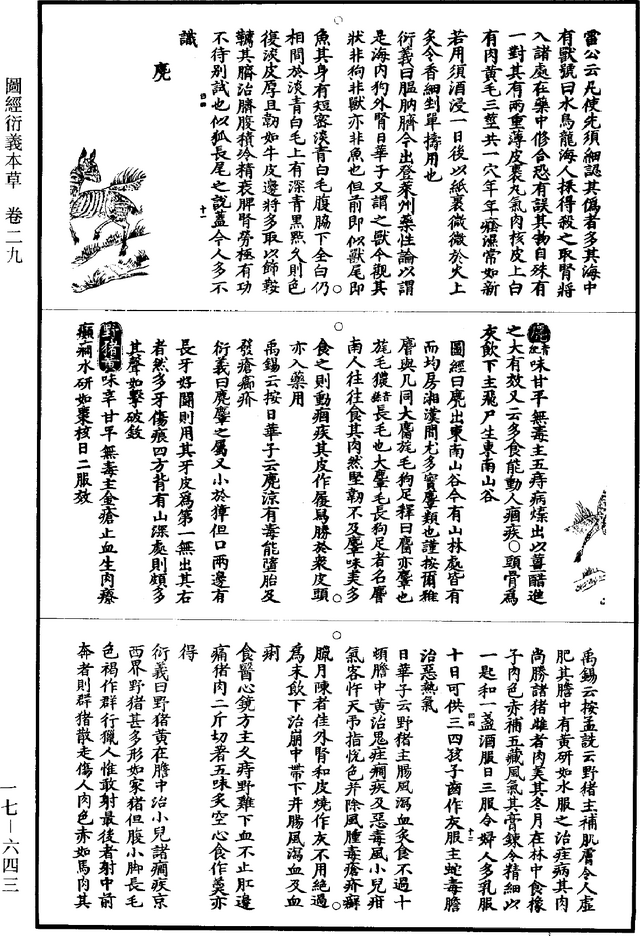 圖經衍義本草　卷二九
一七—六四三
雷公云凡使先須細認其偽者多其海中
有獸號曰水烏龍海人採得殺之取腎將
入諸處在藥中修合恐有誤其物自殊有
一對其有兩重薄皮裹丸氣肉核皮上自
有肉黃毛三莖共一穴年年癊濕常如新
若用須酒浸一日後以紙裹微微於火上
炙令香細剉單擣用也
衍義曰膃肭臍今出登萊州藥性論以謂
是海内狗外腎日華子又謂之獸今觀其
狀非狗非獸亦非魚也但前即似獸尾即
魚其身有短密淡青白毛腹脇下全白仍
相間於淡青白毛上有深青黑點久則色
復淡皮厚且韌如牛皮邊將多取以飾鞍
韉其臍治臍腹積冷精衰脾腎勞極有功
不待别試也似狐長尾之說蓋今人多不
識
麂
麂音几味甘平無毒主五痔病煠出以薑醋進
之大有效又云多食能動人痼疾○頭骨爲
灰飲下主飛尸生東南山谷
圖經曰麂出東南山谷今有山林處皆有
而均房湘漢間尤多實麞類也謹按爾雅
麐與几同大麕旄毛狗足釋曰麕亦麞也
旄毛獶長毛也大麞毛長狗足者名麐
南人往往食其肉然堅韌不及麞味美多
食之則動痼疾其皮作履舄勝於衆皮頭
亦入藥用
禹錫云按日華子云麂凉有毒能墮胎及
發瘡癤疥
衍義曰麂麞之屬又小於獐但口兩邊有
長牙好鬭則用其牙皮爲第一無出其右
者然多牙傷痕四方皆有山深處則頗多
其聲如擊破鈸
野猪黃味辛甘平無毒主金瘡止血生肉療
癲癇水研如棗核日二服效
禹錫云按孟詵云野猪主補肌膚令人虛
肥其膽中有黃研如水服之治疰病其肉
尚勝諸猪雌者肉美其冬月在林中食橡
子肉色赤補五藏風氣其膏鍊令精細以
一匙和一盞酒服日三服令婦人多乳服
十日可供三四孩子齒作灰服主蛇毒膽
治惡熱氣
日華子云野猪主腸風瀉血炙食不過十
頓膽中黃治鬼疰癇疾及惡毒風小兒疳
氣客忤天弔指悦色并除風腫毒瘡疥癬
臘月陳者佳外腎和皮燒作灰不用絶過
爲末飲下治崩中帶下并腸風瀉血及血
痢
食醫心鏡方主久痔野雞下血不止肛邊
痛猪肉二斤切著五味炙空心食作羹亦
得
衍義曰野猪黃在膽中治小兒諸癇疾京
西界野猪甚多形如家猪但腹小脚長毛
色褐作群行獵人惟敢射最後者射中前
奔者則群猪散走傷人肉色赤如馬肉其